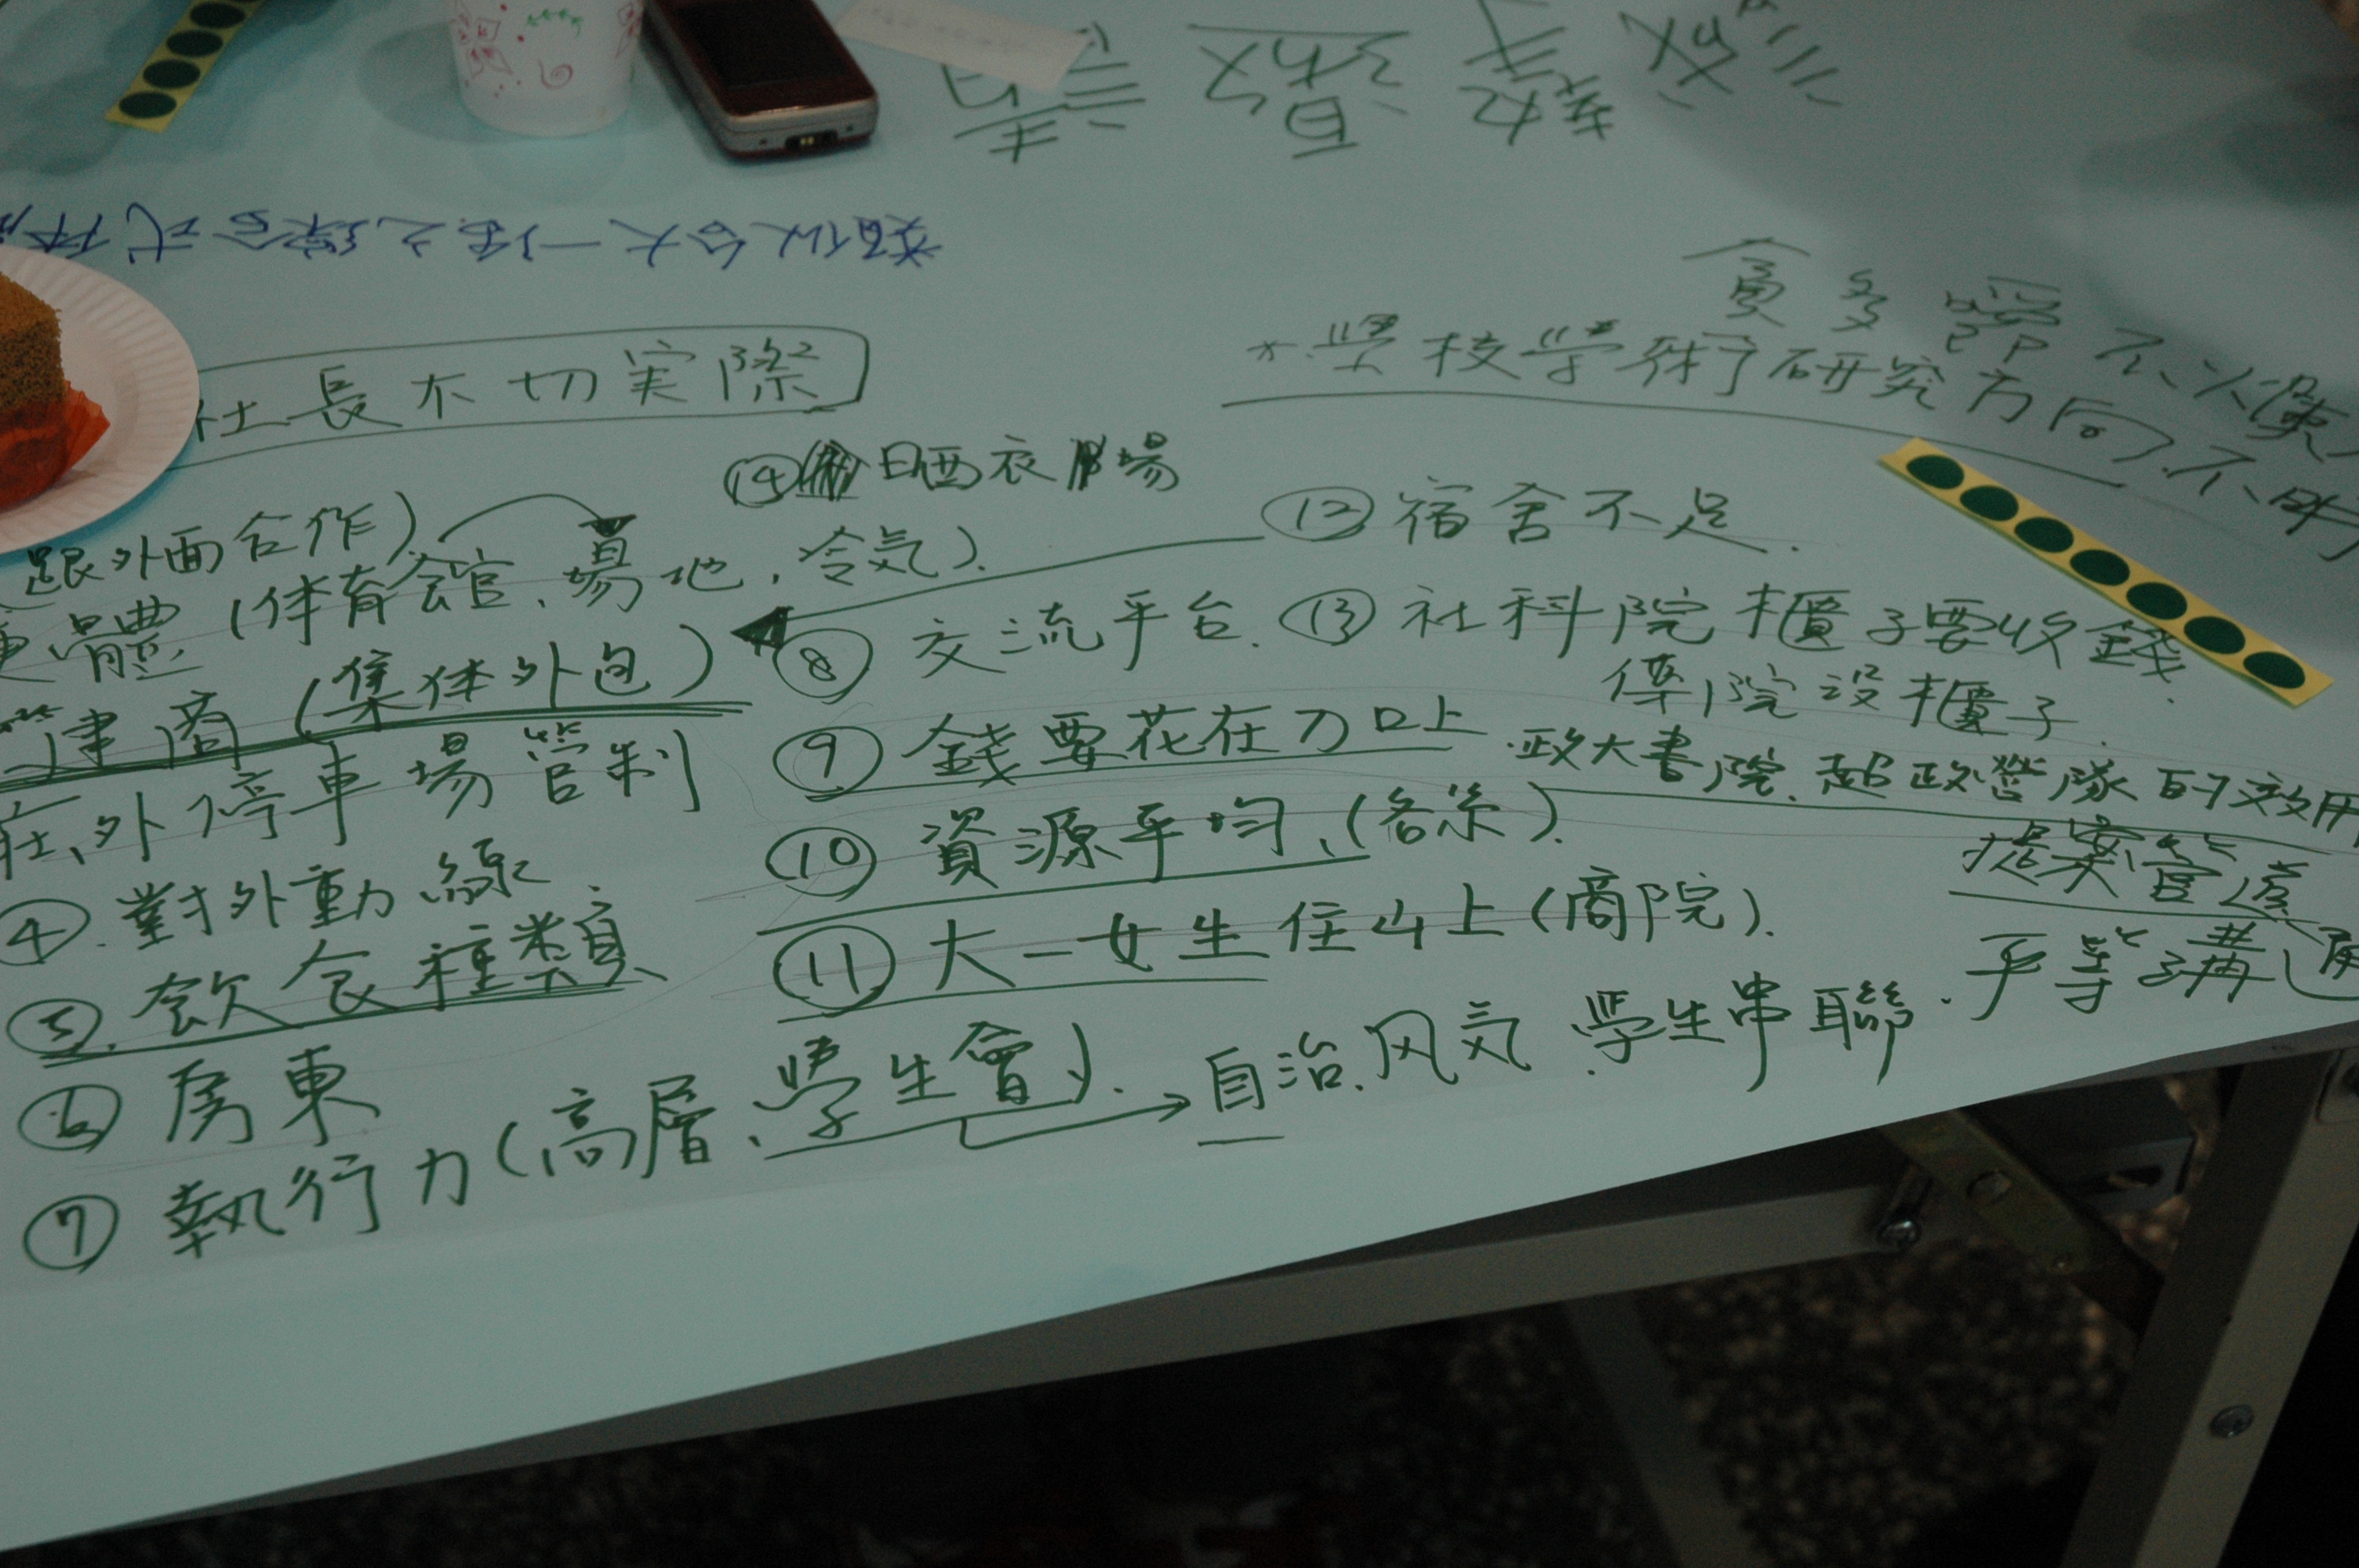 類似台大一活之綜合式
社長不切実際
貪多嚼不
*學校學術研究方向不明
⑭ 日晒衣場
跟外面合作)
硬體(体育館、場地,冷気).
建商(集体外包)
外停車場管制
④.對外動線
⑤.飲食種類
⑥ 房東
⑦ 執行力(高層、學生會). → 自治.风気.學生串聯.平等溝通
⑧ 交流平台.
⑨ 錢要花在刀口上
⑩ 資源平均、(各系).
⑪ 大一女生住山上(商院).
⑫ 宿舍不足.
⑬ 社科院櫃子要收錢.
傳院沒櫃子.
.政大書院.超政營隊的效用
提案管道